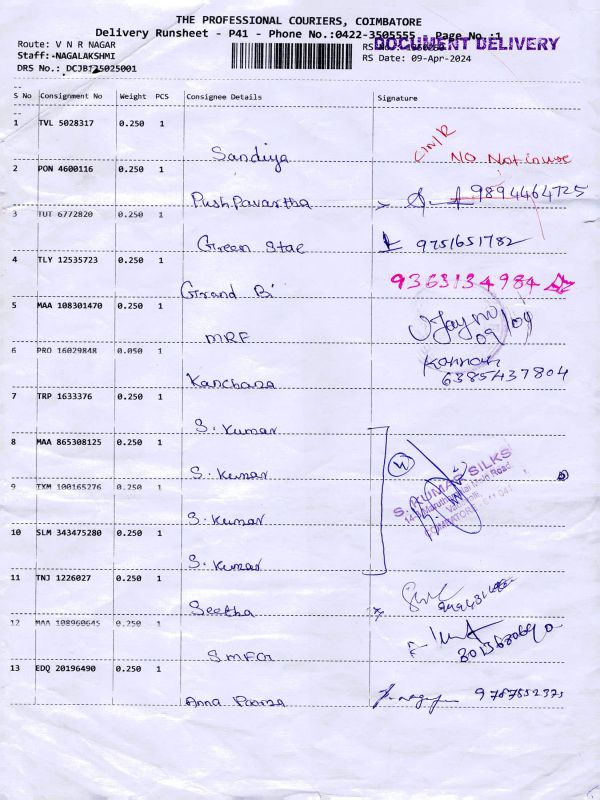 THE PROFESSIONAL COURIERS, COIMBATORE
Delivery Runsheet - P41 - Phone No.:0422-3505555 Page No.:1
Route: V N R NAGAR
DOCUMENT DELIVERY
Staff: NAGALAKSHMI
RS Date: 09-Apr-2024
DRS No.:
S No Consignment No Weight PCS Consignee Details Signature
1 TVL 5028317 0.250 1
Sandiya No Not in use
2 PON 4600116 0.250 1
Push Pavartha 9894464725
3 TUT 6772820 0.250 1
Green Star 9751651782
4 TLY 12535723 0.250 1
Grand Bi 9363134984
5 MAA 108301470 0.250 1
MRF 09/04
6 PRO 16029848 0.050 1
Kanchana Kannan
6385437804
7 TRP 1633376 0.250 1
S. Kumar
8 MAA 865308125 0.250 1
S. Kumar
S. KUMAR SILKS
9 TXM 100165276 0.250 1
S. Kumar
10 SLM 343475280 0.250 1
S. Kumar
11 TNJ 1226027 0.250 1
Seetha
12 MAA 108960645 0.250 1
SMFG
13 EDQ 20196490 0.250 1
Anna Poorna 9787852373